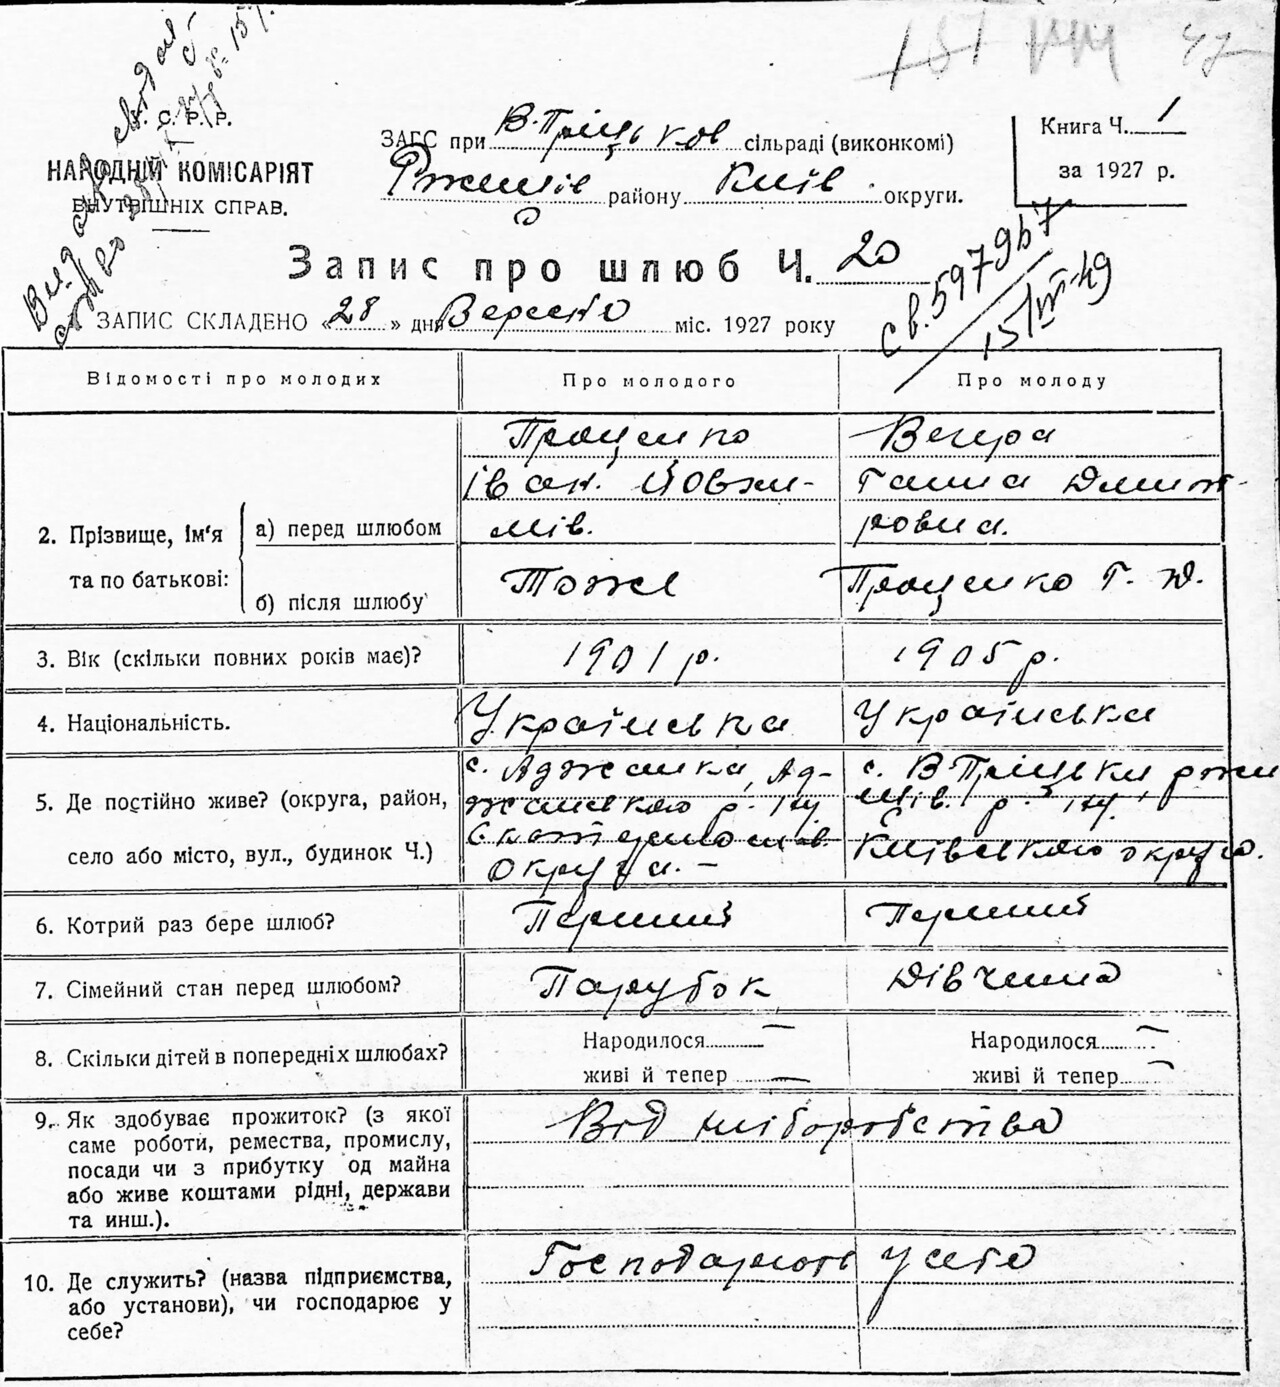 У. С. Р. Р.
НАРОДНІЙ КОМІСАРІЯТ
ВНУТРІШНІХ СПРАВ.
ЗАГС при В. Пріцьков сільраді (виконкомі)
Ржищів району Київ. округи.
Книга Ч. 1
за 1927 р.
Запис про шлюб Ч. 20
св. 597967
15/III-49
ЗАПИС СКЛАДЕНО « 28 » дня Вересня міс. 1927 року
Відомості про молодих Про молодого Про молоду
2. Прізвище, ім'я та по батькові:
а) перед шлюбом
Проценко
Іван Йовхи-
мів.
Вегера
Ганна Дмит-
ровна.
б) після шлюбу
Тоже
Проценко Г. Д.
3. Вік (скільки повних років має)? 1901 р. 1905 р.
4. Національність. Українська Українська
5. Де постійно живе? (округа, район,
село або місто, вул., будинок Ч.)
с. Аджамка, Ад-
жамського р-ну
округа. –
с. В Пріцьки Ржи
щів. р-ну,
Київського округа.
6. Котрий раз бере шлюб? Перший Перший
7. Сімейний стан перед шлюбом? Парубок Дівчина
8. Скільки дітей в попередніх шлюбах?
Народилося — Народилося —
живі й тепер — живі й тепер —
9. Як здобуває прожиток? (з якої
саме роботи, ремества, промислу,
посади чи з прибутку од майна
або живе коштами рідні, держави
та инш.).
Від хліборобства
10. Де служить? (назва підприємства,
або установи), чи господарює у
себе?
Господарють у себе